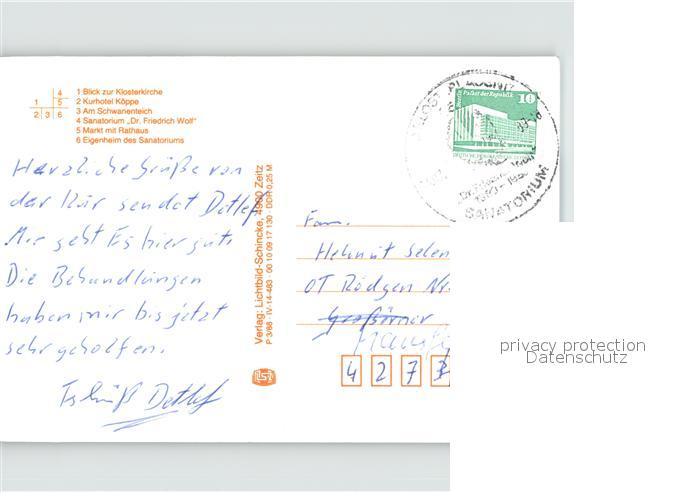 4
1 5
2 3 6
1 Blick zur Klosterkirche
2 Kurhotel Köppe
3 Am Schwanenteich
4 Sanatorium „Dr. Friedrich Wolf"
5 Markt mit Rathaus
6 Eigenheim des Sanatoriums
Herzliche Grüße von
der Kur sendet Detlef
Mir geht Es hier gut.
Die Behandlungen
haben mir bis jetzt
sehr geholfen.
Tschüß Detlef
Verlag: Lichtbild-Schincke, 4900 Zeitz
P 3/88 · IV-14-483 · 00 10 09 17 130 · DDR 0,25 M
Berlin, Palast der Republik
10
SANATORIUM
Fam.
Helmut
OT Rödgen Nr.
Großörner
4 2 7 3
privacy protection
Datenschutz